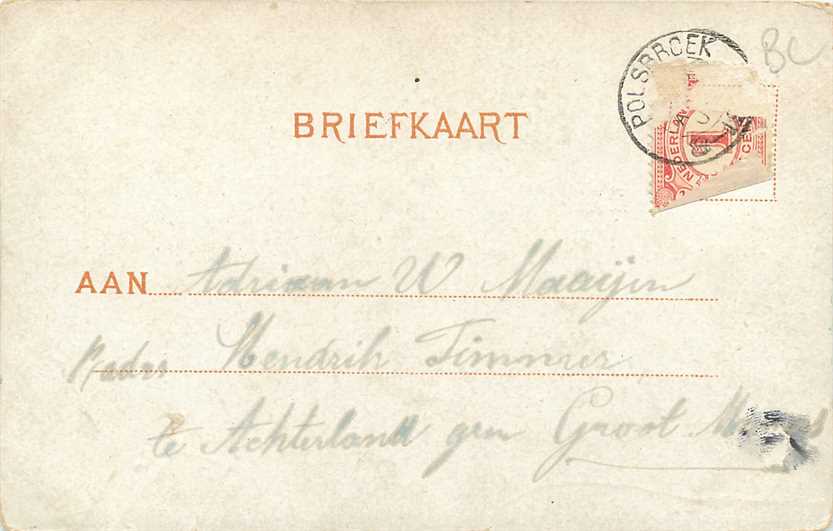 POLSBROEK
BC
BRIEFKAART
1
AAN Adriaan W Maaijen
p/adres Hendrik Timmer
te Achterland gem Groot